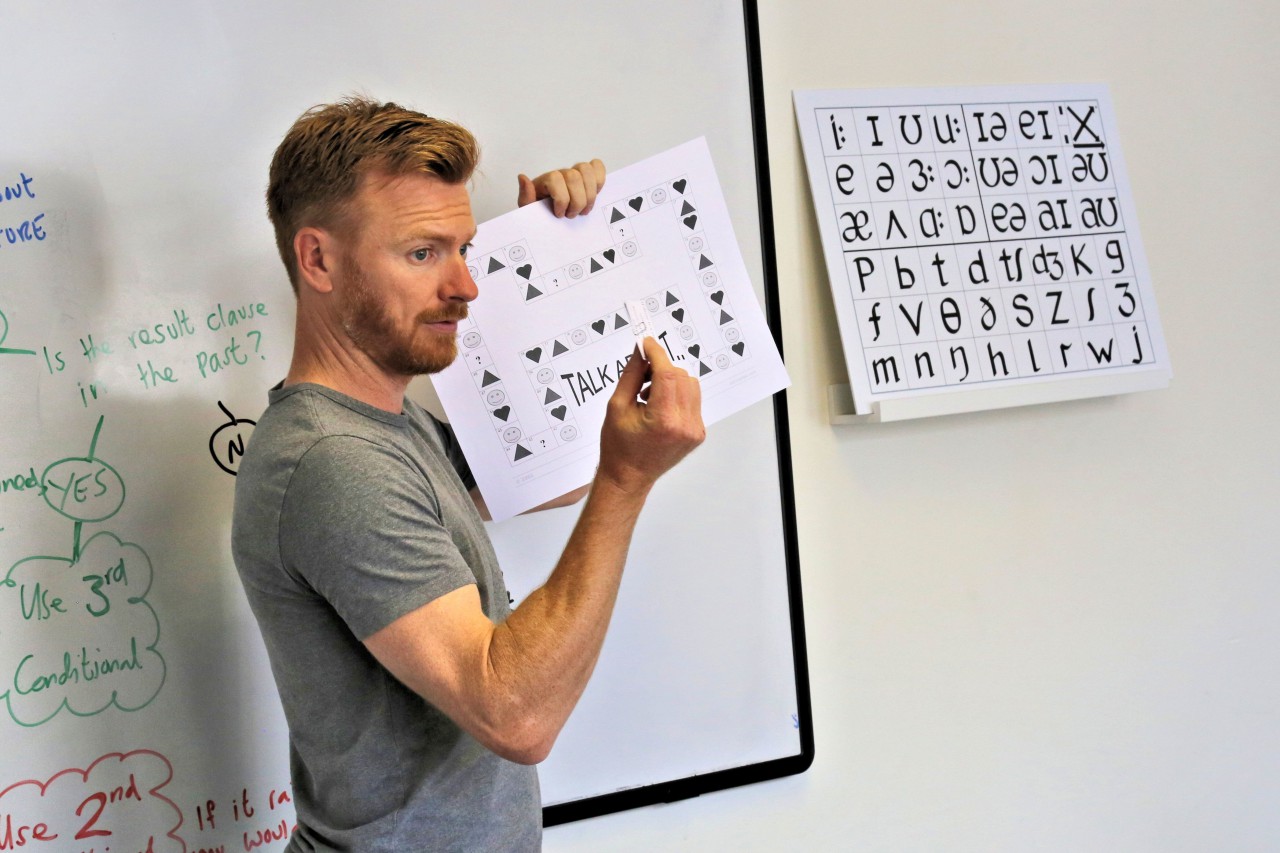 out
TURE
Is the result clause
in the Past?
N
YES
Use 3rd
Conditional
Use 2nd
If it
TALK
iː ɪ ʊ uː ɪə eɪ
e ə ɜː ɔː ʊə ɔɪ əʊ
æ ʌ ɑː ɒ eə aɪ aʊ
p b t d tʃ dʒ k g
f v θ ð s z ʃ ʒ
m n ŋ h l r w j